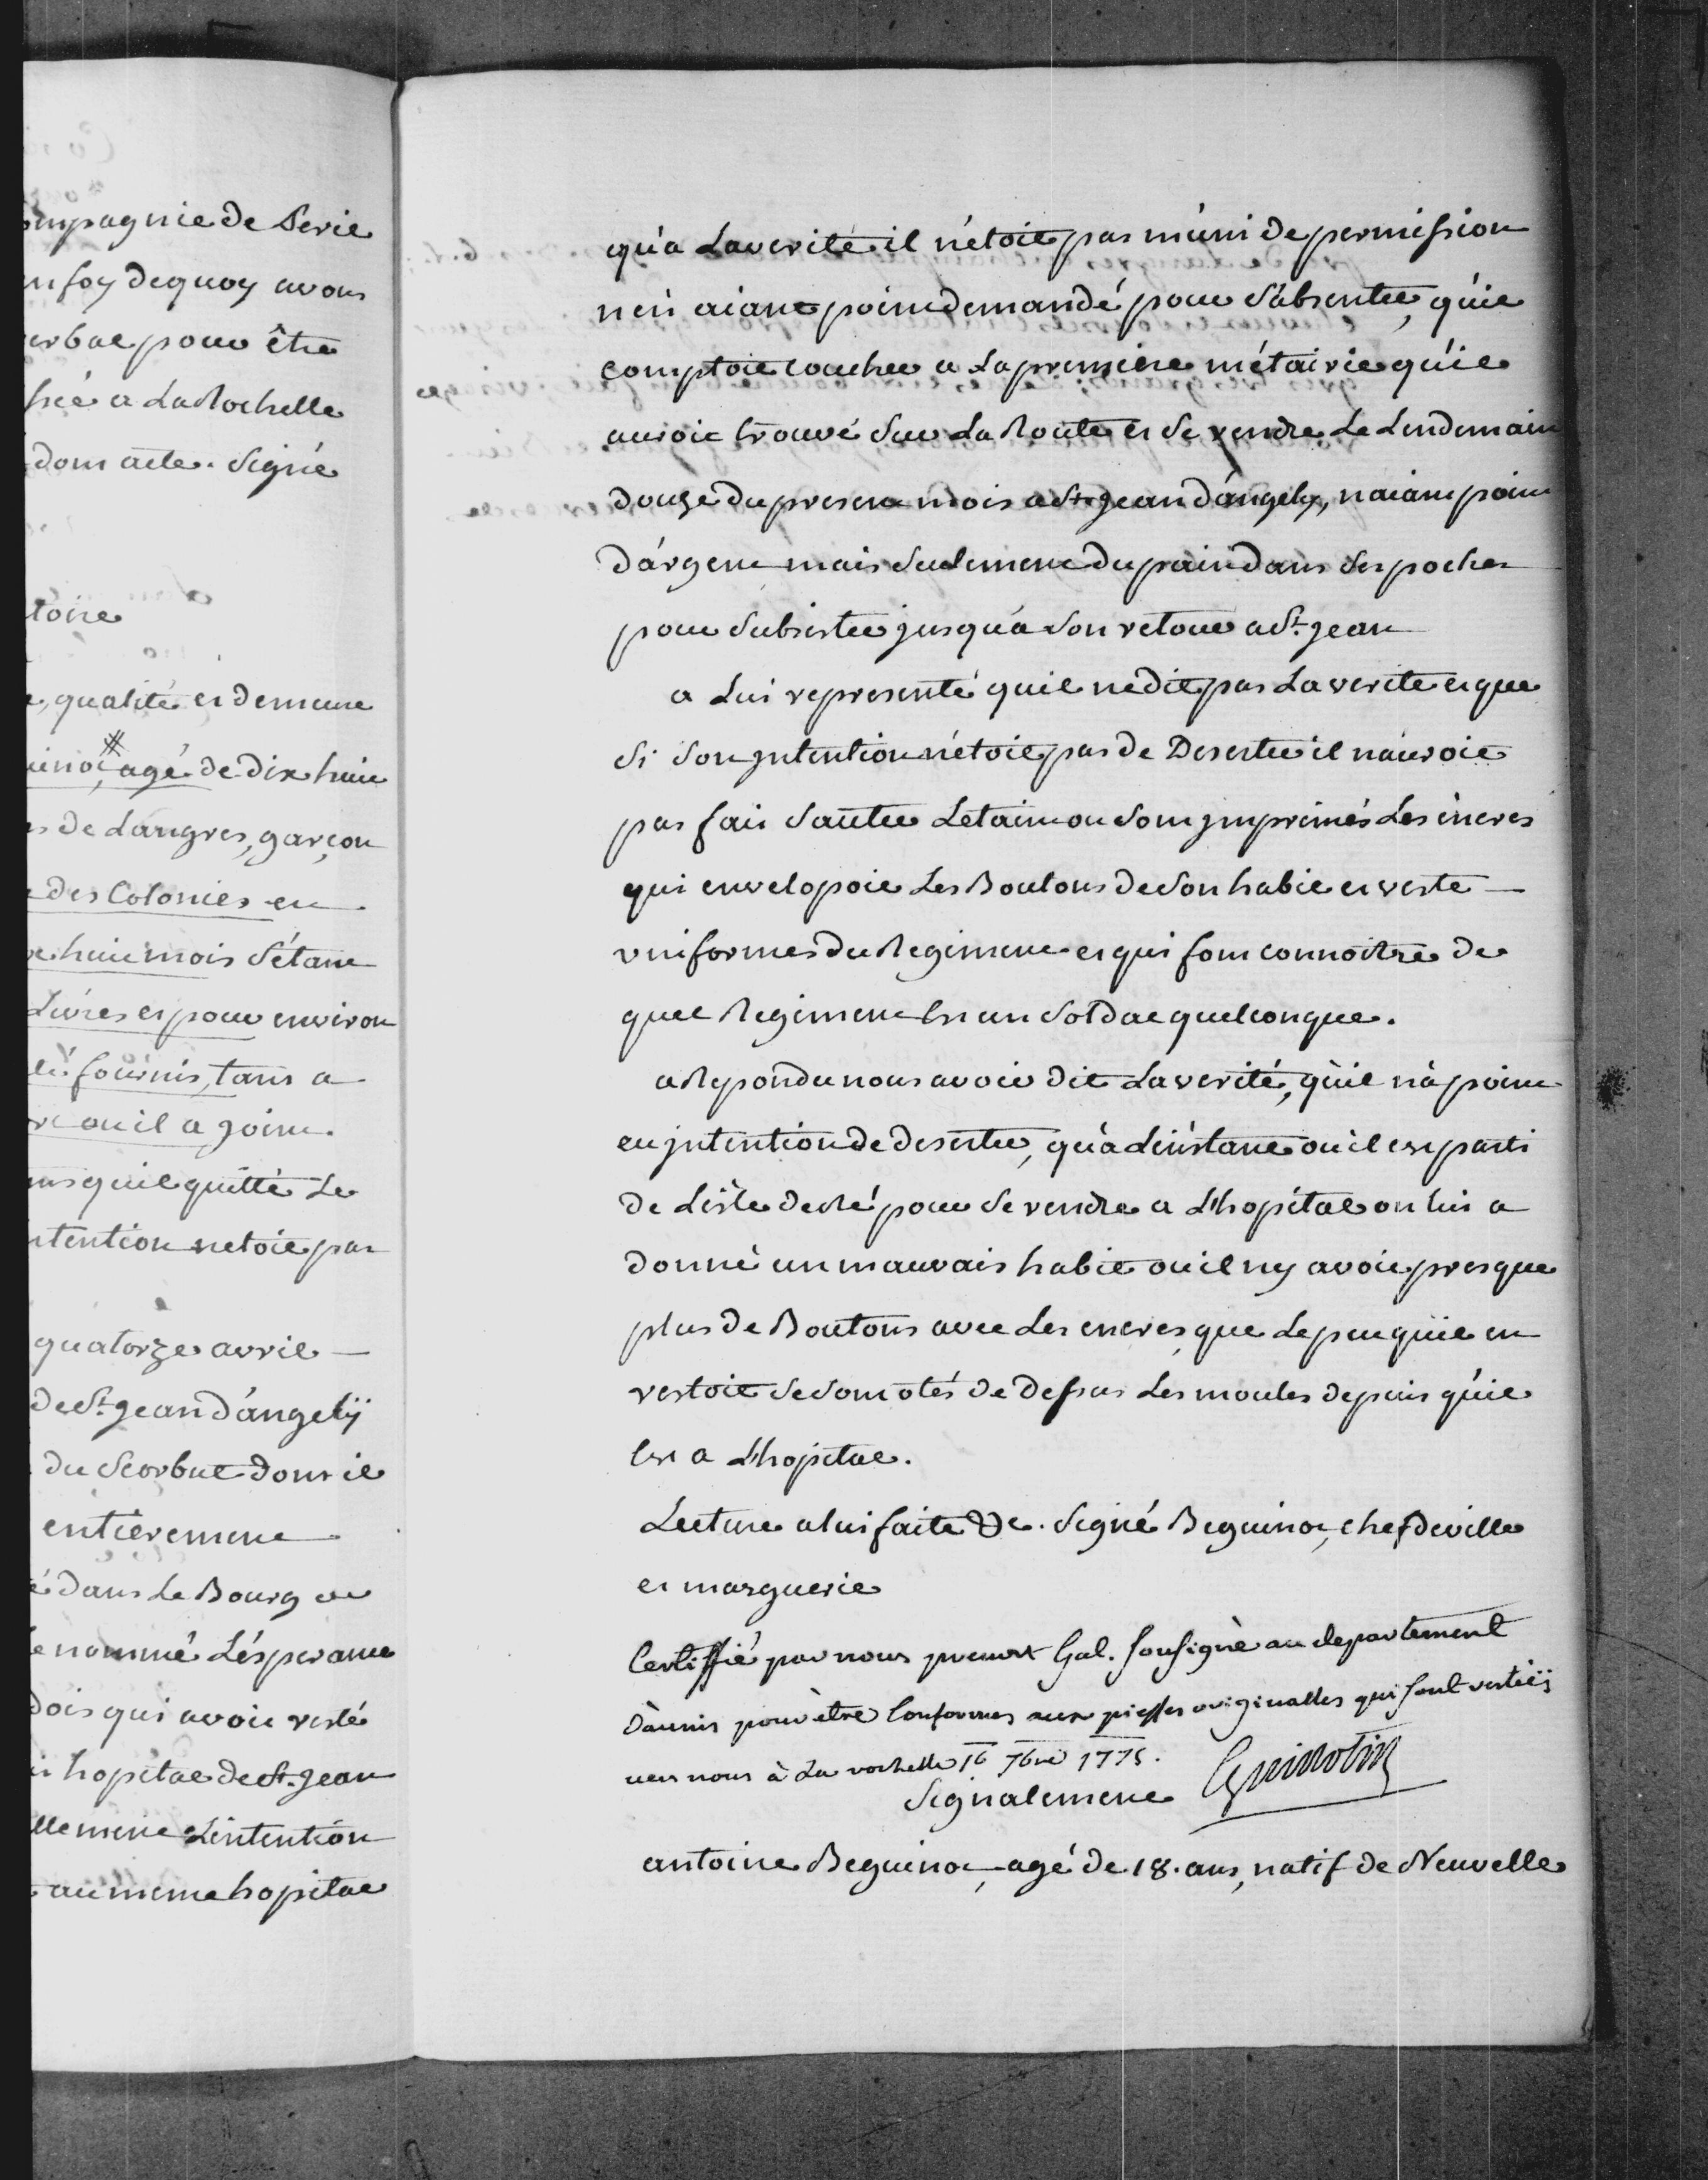 ompagnie de Serie
en foy dequoy avons
erbal pour être
frée a La Rochelle
dont acte. Signé
toire
e, qualité et demeure
uinot, # agé de dix huit
s de Langres, garçon
e des Colonies en
e huit mois s'étant
Livres et pour environ
été fournis, tant a
re ou il a joint.
as qu'il quitté Le
ntention n'etoit pas
quatorze avril
de St. jean d'angelÿ
du Scorbut dont il
entièrement
é dans Le Bourg de
e nommé L'ésperance
dois qui avoit resté
it hopital de St. jean
llement L'intention
t au meme hopital
qu'a La verité il n'étoit pas muni de permission
n'en aiant point demandé pour s'absenter, qu'il
comptoit coucher a La premiere métairie qu'il
auroit trouvé sur La Route et se rendre Le Lendemain
douze du present mois a St. jean d'angely, n'aiant point
d'argent mais seulement du pain dans ses poches
pour subsister jusqu'a son retour a St. jean
a Lui representé qu'il ne dit pas La verite et que
si son jntention n'étoit pas de Deserter il n'auroit
pas fait sauter L'etaim ou sont jmprimés Les encres
qui envelopoit Les Boutons de son habit et veste
uniformes du Regiment et qui font connoitre de
quel Regiment est un soldat quelconque.
a Repondu nous avoir dit La verité, qu'il n'a point
eu jntention de deserter, qu'a L'instant ou il est parti
de L'isle de Ré pour se rendre a L'hopital on lui a
donné un mauvais habit ou il n'y avoit presque
plus de Boutons avec Les encres, que Le peu qu'il en
restoit se sont otés de dessus Les moules depuis qu'il
est a L'hopital.
Lecture a lui faite &c. Signé Beguinot, chefdeville
et marguerie
Certiffié par nous prevost Gal. soussigné au departement
d'aunis pour être Conformes aux piesses originalles qui sont restéés
vers nous à La rochelle 16 7bre 1775.
Guillotin
Signalement
antoine Beguinot, agé de 18. ans, natif de Neuvelle